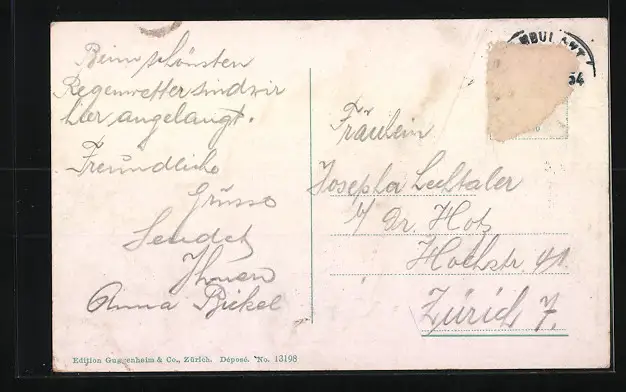 Beim schönsten
Regenwetter sind wir
hier angelangt.
Freundliche
Grüsse
Sendet
Ihnen
Anna Bickel
MBULANT
54
Fräulein
Josepha Lechtaler
Dr. Hotz
Hochstr. 41
Zürich 7.
Edition Guggenheim & Co., Zürich. Déposé. No. 13198